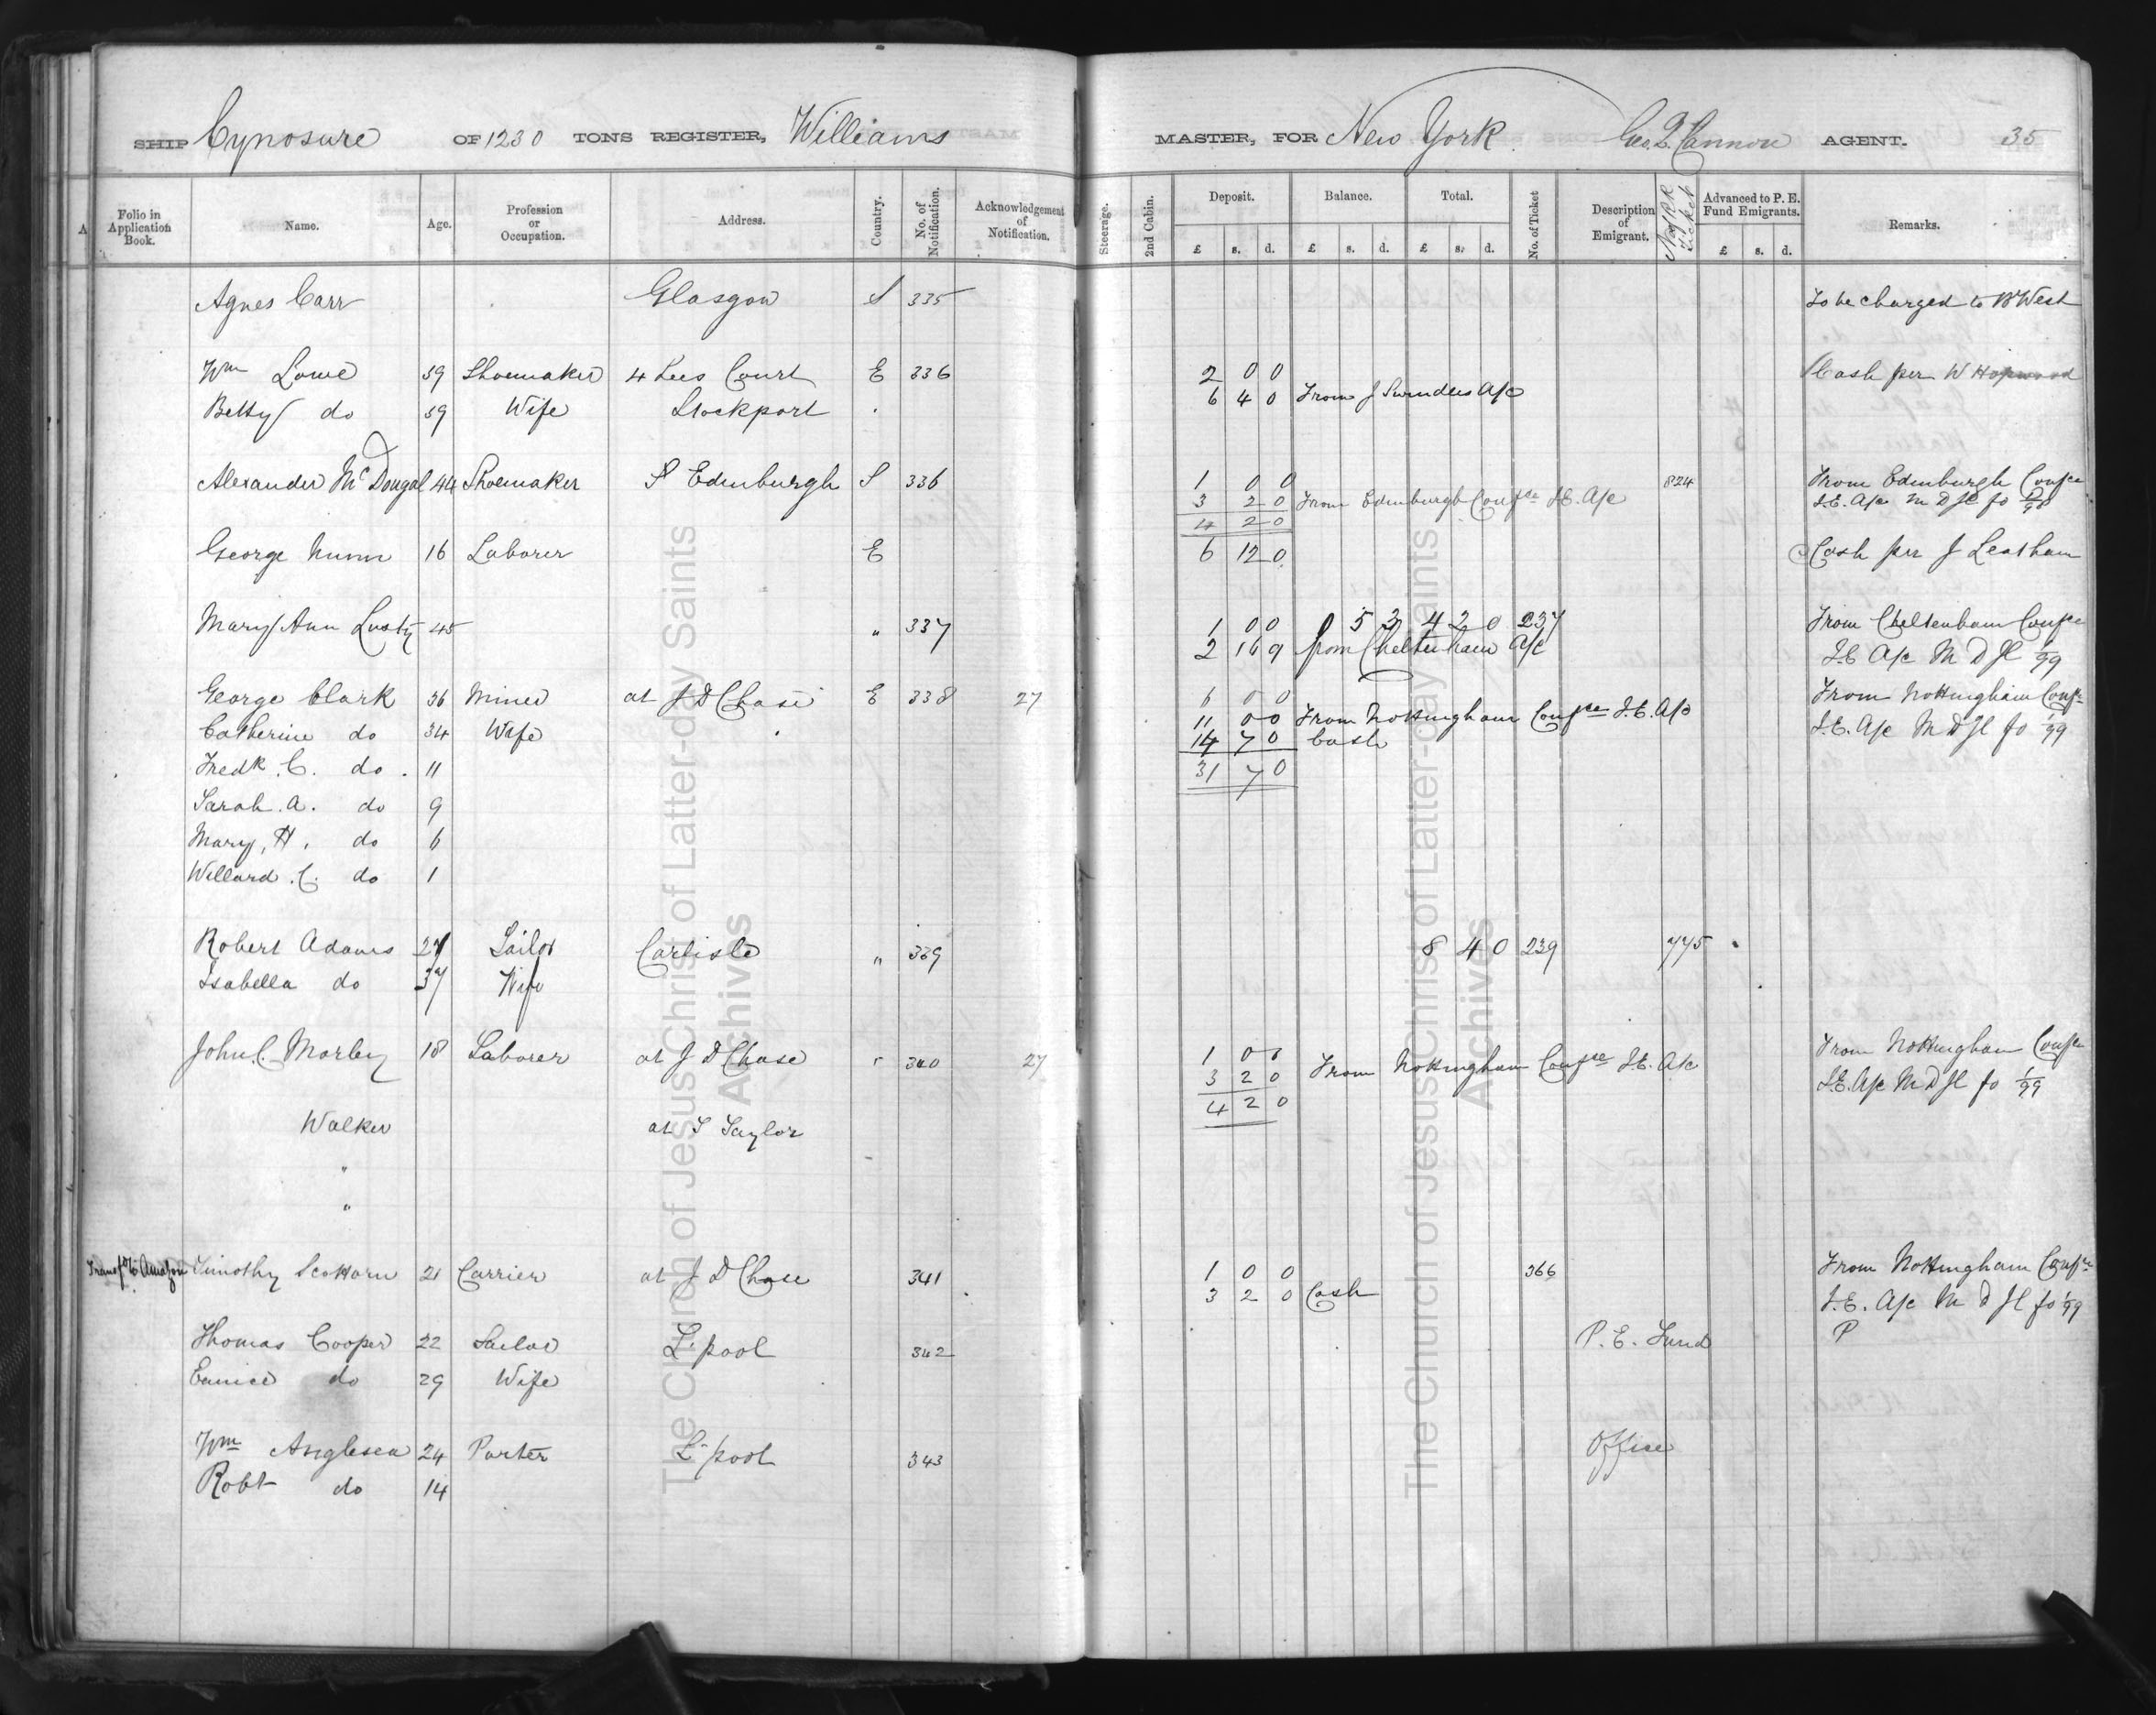 SHIP Cynosure OF 1230 TONS REGISTER, Williams MASTER, FOR New York Geo. Q. Cannon AGENT. 35
Folio in Application Book. Name. Age. Profession or Occupation. Address. Country. No. of Notification. Acknowledgement of Notification. Steerage. 2nd Cabin. Deposit. Balance. Total. No. of Ticket Description of Emigrant. No of RR Ticket Advanced to P. E. Fund Emigrants. Remarks.
£ s. d. £ s. d. £ s. d. £ s. d.
Agnes Carr Glasgow S 335 To be charged to W West
Wm Lowe 59 Shoemaker 4 Lees Court E 336 2 0 0 Cash per W Hopwood
Betty do 59 Wife Stockport 6 4 0 From J Swindles A/c
Alexander McDougal 44 Shoemaker S Edinburgh S 336 1 0 0 824 From Edinburgh Confce
3 2 0 From Edinburgh Confce I.E. A/c I.E. A/c M D Jl fo
4 2 0
George Nunn 16 Laborer E 6 12 0 Cash per J Leatham
Mary Ann Lusty 45 " 337 1 0 0 5 3 4 2 0 237 From Cheltenham Confce
2 16 9 from Cheltenham A/c I.E A/c M D Jl 1/99
George Clark 36 Miner at J D Chase E 338 27 6 0 0 From Nottingham Confce
Catherine do 34 Wife 11 0 0 From Nottingham Confce I.E. A/c I.E. A/c M D Jl fo 1/99
14 7 0 Cash
Fredk. C. do. 11 31 7 0
Sarah. A. do 9
Mary, H. do 6
Willard. C. do 1
Robert Adams 27 Tailor Carlisle " 339 8 4 0 239 775
Isabella do 37 Wife
John C. Morley 18 Laborer at J D Chase " 340 27 1 0 0 From Nottingham Confce
3 2 0 From Nottingham Confce I.E. A/c I.E. A/c M D Jl fo 1/99
4 2 0
Walker at T Taylor
"
"
Transfd to Amazon Timothy Scottorn 21 Carrier at J D Chase 341 1 0 0 366 From Nottingham Confce
3 2 0 Cash I.E. A/c M D Jl fo 1/99
Thomas Cooper 22 Tailor L'pool 342 P. E. Fund P
Eunice do 29 Wife
Wm Anglesea 24 Porter L'pool 343 Office
Robt do 14
The Church of Jesus Christ of Latter-day Saints
Archives
The Church of Jesus Christ of Latter-day Saints
Archives